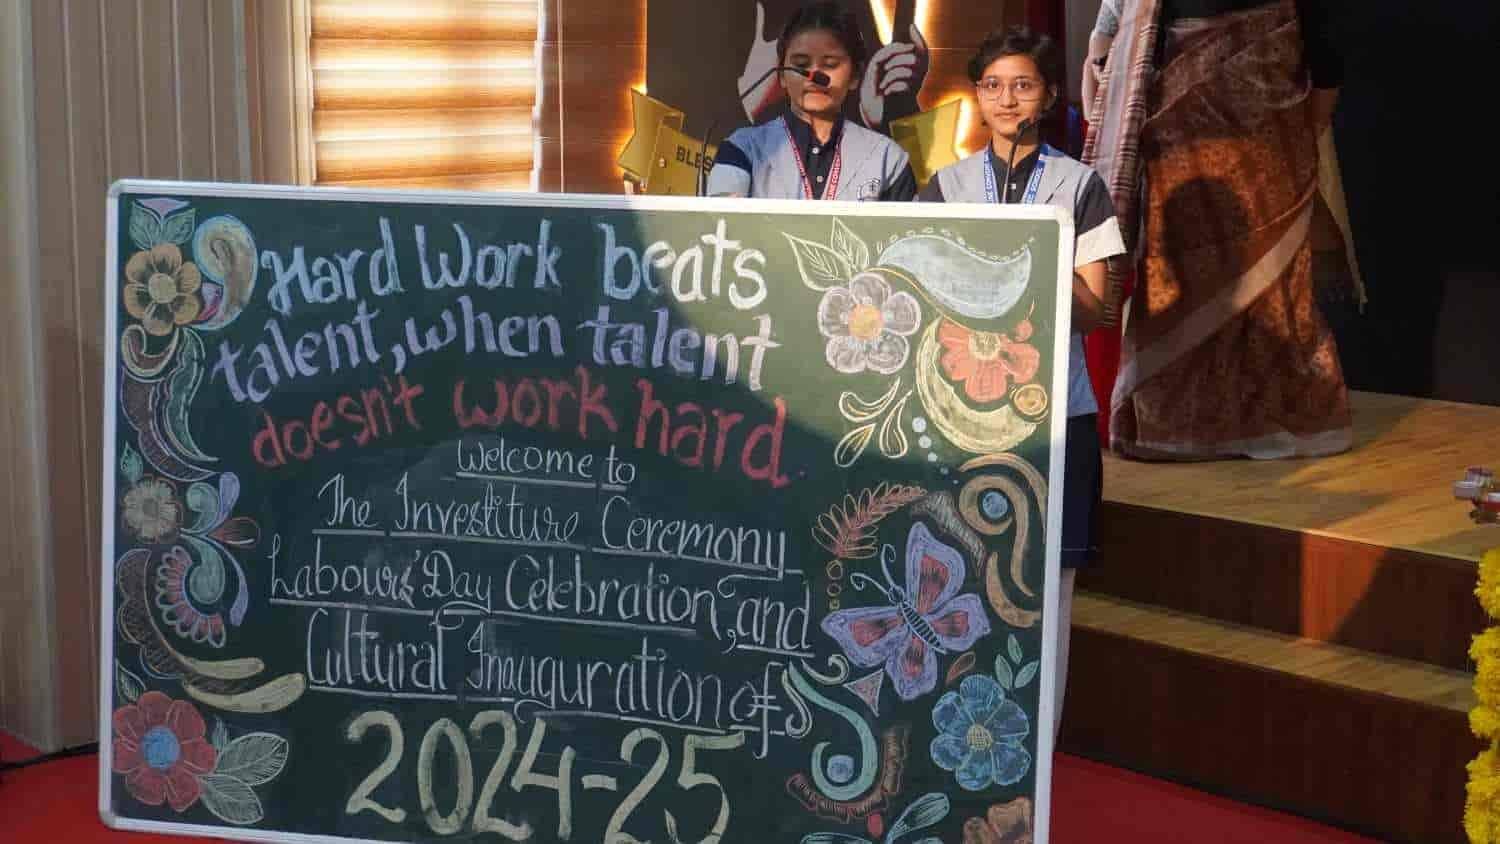 BLES
Hard Work beats
talent, when talent
doesn't work hard.
Welcome to
The Investiture Ceremony
Labours' Day Celebration, and
Cultural Inauguration of
2024-25